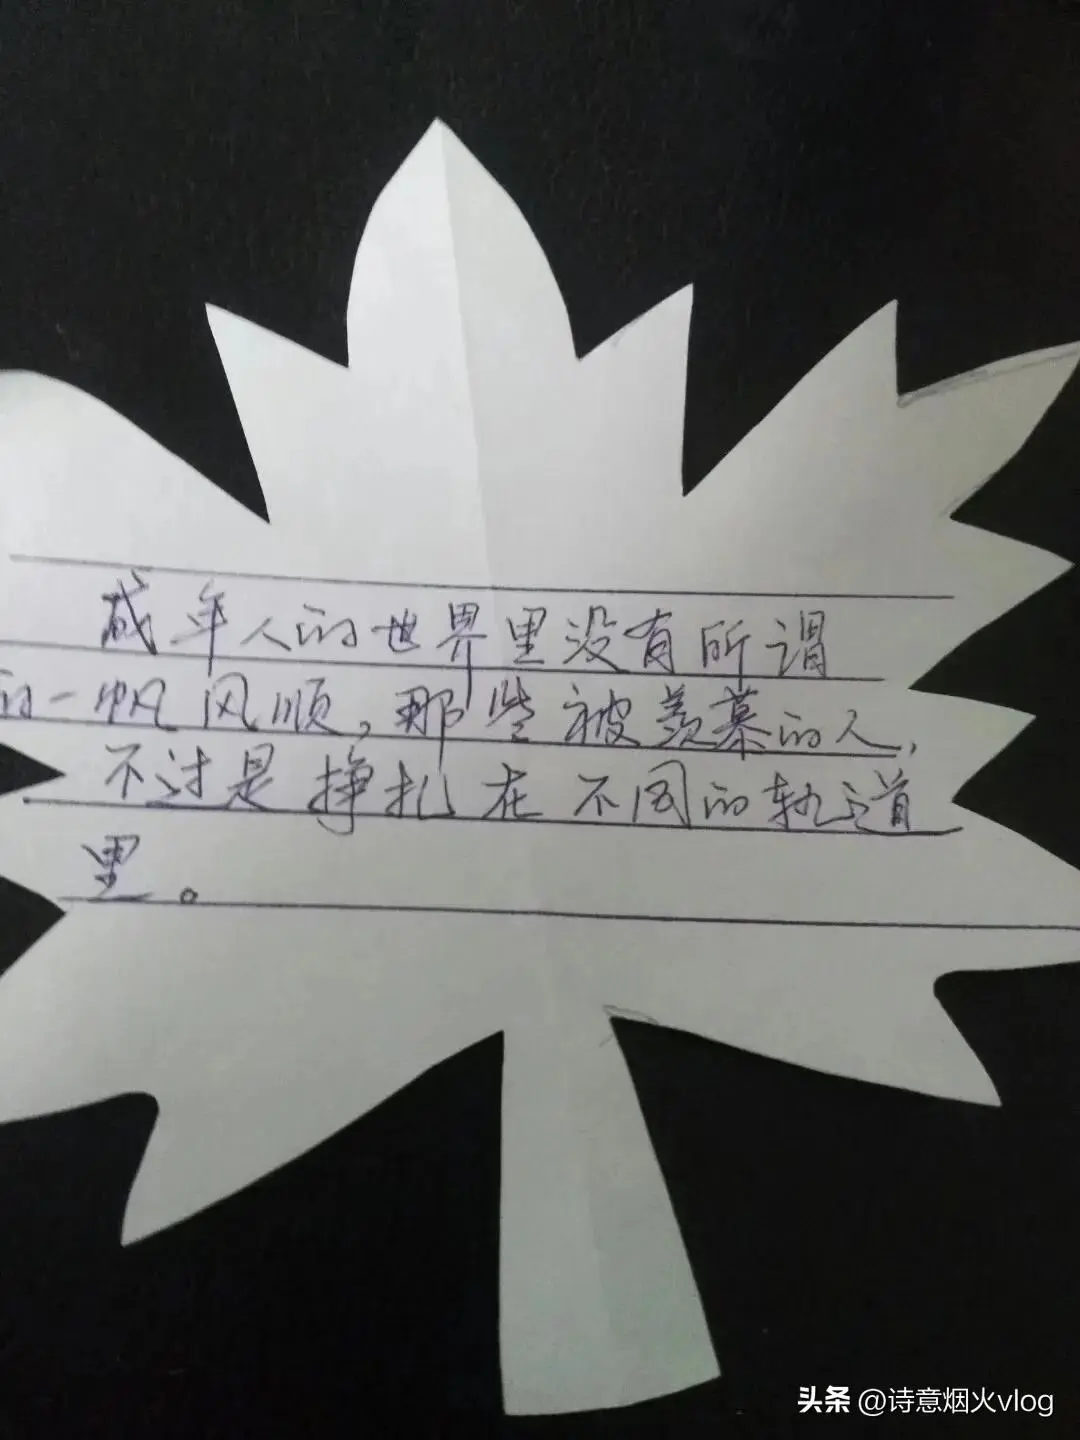 成年人的世界里没有所谓
的一帆风顺，那些被羡慕的人，
不过是挣扎在不同的轨道
里。
头条 @诗意烟火vlog